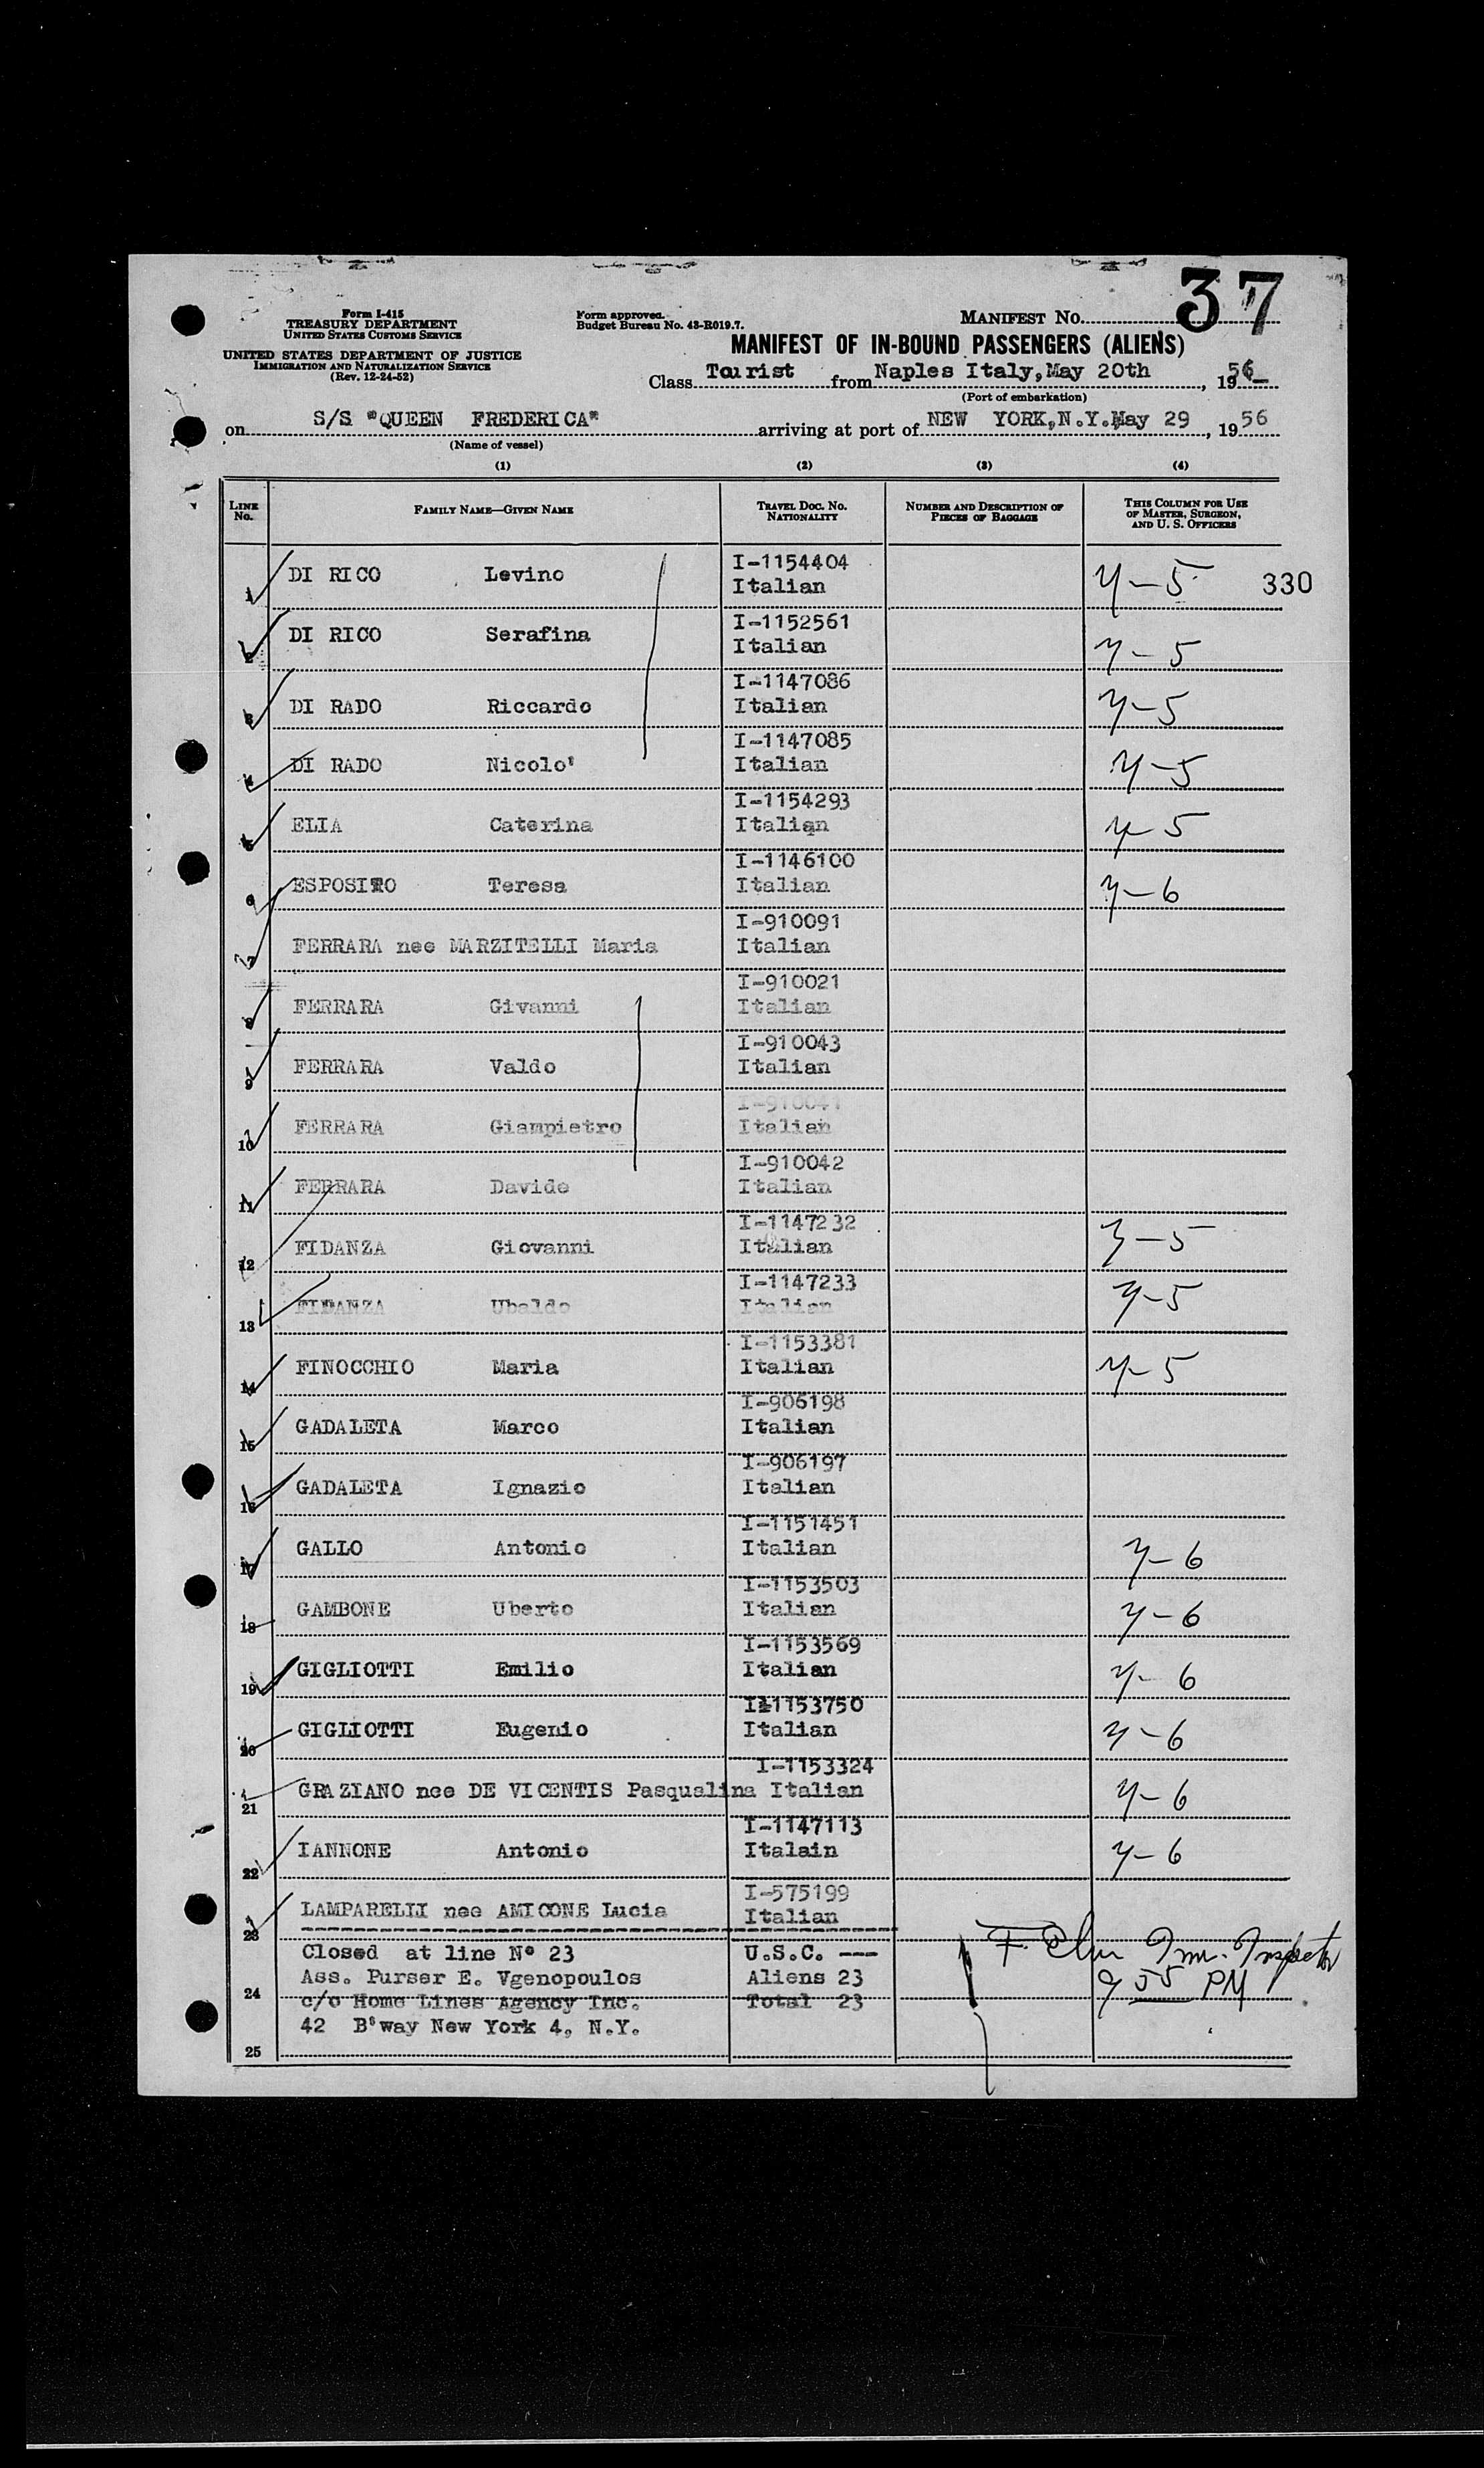 37
Form I-415
TREASURY DEPARTMENT
UNITED STATES CUSTOMS SERVICE
UNITED STATES DEPARTMENT OF JUSTICE
IMMIGRATION AND NATURALIZATION SERVICE
(Rev. 12-24-52)
Form approved.
Budget Bureau No. 43-R019.7.
MANIFEST NO.
MANIFEST OF IN-BOUND PASSENGERS (ALIENS)
Class Tourist from Naples Italy, May 20th, 1956
(Port of embarkation)
on S/S "QUEEN FREDERICA" arriving at port of NEW YORK, N.Y. May 29, 1956
(Name of vessel)
(1) (2) (3) (4)
LINE NO. FAMILY NAME—GIVEN NAME TRAVEL DOC. NO. NATIONALITY NUMBER AND DESCRIPTION OF PIECES OF BAGGAGE THIS COLUMN FOR USE OF MASTER, SURGEON, AND U. S. OFFICERS
I-1154404
1 DI RICO Levino Italian 5 330
I-1152561
2 DI RICO Serafina Italian 5
I-1147086
3 DI RADO Riccardo Italian 5
I-1147085
4 DI RADO Nicolo' Italian 5
I-1154293
5 ELIA Caterina Italian 5
I-1146100
6 ESPOSITO Teresa Italian 6
I-910091
7 FERRARA nee MARZITELLI Maria Italian
I-910021
8 FERRARA Givanni Italian
I-910043
9 FERRARA Valdo Italian
10 FERRARA Giampietro Italian
I-910042
11 FERRARA Davide Italian
I-1147232
12 FIDANZA Giovanni Italian 5
I-1147233
13 FIDANZA Ubaldo Italian 5
I-1153381
14 FINOCCHIO Maria Italian 5
I-906198
15 GADALETA Marco Italian
I-906197
16 GADALETA Ignazio Italian
I-1151451
17 GALLO Antonio Italian 6
I-1153503
18 GAMBONE Uberto Italian 6
I-1153569
19 GIGLIOTTI Emilio Italian 6
I-1153750
20 GIGLIOTTI Eugenio Italian 6
I-1153324
21 GRAZIANO nee DE VICENTIS Pasqualina Italian 6
I-1147113
22 IANNONE Antonio Italain 6
I-575199
23 LAMPARELLI nee AMICONE Lucia Italian
Closed at line Nº 23 U.S.C. --- Imm. Inspector
24 Ass. Purser E. Vgenopoulos Aliens 23 9 55 PM
c/o Home Lines Agency Inc. Total 23
42 B'way New York 4, N.Y.
25